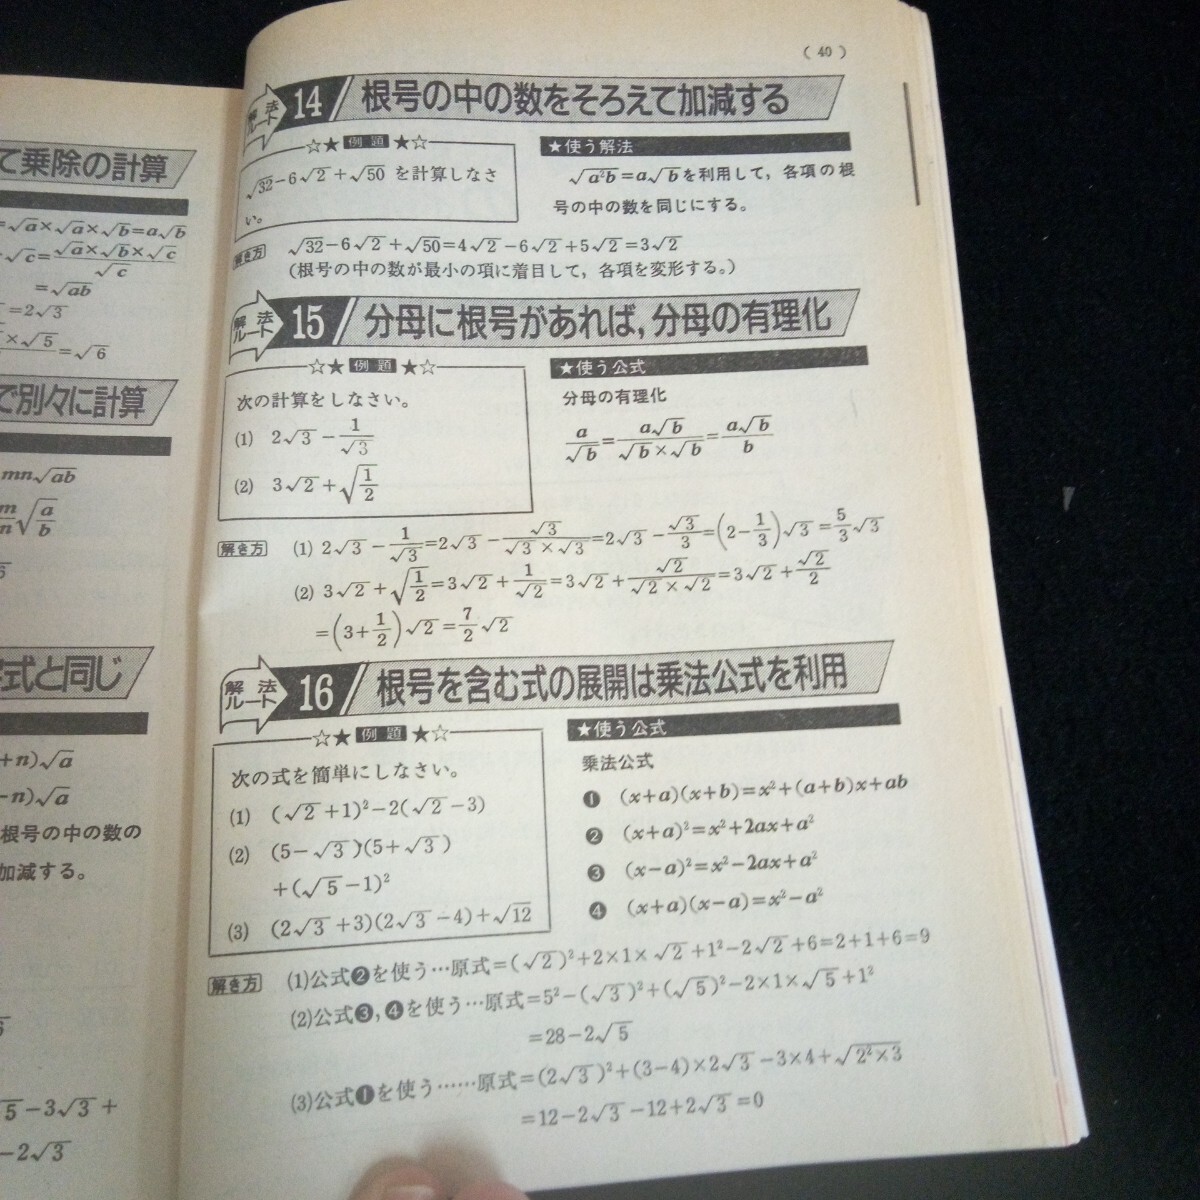 て乗除の計算
=√a×√a×√b=a√b
√c=(√a×√b×√c)/√c
=√ab
=2√3
×√5/ =√6
で別々に計算
mn√ab
m/n√(a/b)
字式と同じ
+n)√a
-n)√a
根号の中の数の
加減する。
√5-3√3+
-2√3
( 40 )
解法ルート 14 根号の中の数をそろえて加減する
☆★ 例題 ★☆
√32-6√2+√50 を計算しなさ
い。
★使う解法
√a²b=a√bを利用して，各項の根
号の中の数を同じにする。
解き方 √32-6√2+√50=4√2-6√2+5√2=3√2
(根号の中の数が最小の項に着目して，各項を変形する。)
解法ルート 15 分母に根号があれば，分母の有理化
☆★ 例題 ★☆
次の計算をしなさい。
(1) 2√3-1/√3
(2) 3√2+√(1/2)
★使う公式
分母の有理化
a/√b=a√b/(√b×√b)=a√b/b
解き方 (1) 2√3-1/√3=2√3-√3/(√3×√3)=2√3-√3/3=(2-1/3)√3=5/3√3
(2) 3√2+√(1/2)=3√2+1/√2=3√2+√2/(√2×√2)=3√2+√2/2
=(3+1/2)√2=7/2√2
解法ルート 16 根号を含む式の展開は乗法公式を利用
☆★ 例題 ★☆
次の式を簡単にしなさい。
(1) (√2+1)²-2(√2-3)
(2) (5-√3)(5+√3)
+(√5-1)²
(3) (2√3+3)(2√3-4)+√12
★使う公式
乗法公式
❶ (x+a)(x+b)=x²+(a+b)x+ab
❷ (x+a)²=x²+2ax+a²
❸ (x-a)²=x²-2ax+a²
❹ (x+a)(x-a)=x²-a²
解き方 (1)公式❷を使う…原式=(√2)²+2×1×√2+1²-2√2+6=2+1+6=9
(2)公式❸,❹を使う…原式=5²-(√3)²+(√5)²-2×1×√5+1²
=28-2√5
(3)公式❶を使う……原式=(2√3)²+(3-4)×2√3-3×4+√2²×3
=12-2√3-12+2√3=0